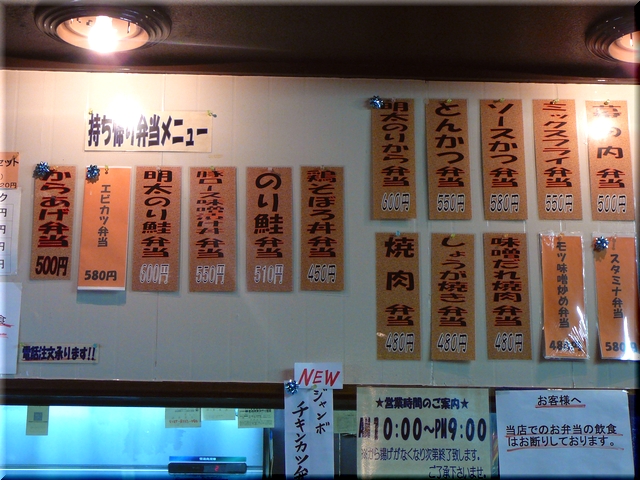 持ち帰り弁当メニュー
からあげ弁当
500円
エビカツ弁当
580円
明太のり鮭弁当
600円
弁当
550円
のり鮭弁当
510円
鶏そぼろ丼弁当
450円
明太のりから弁当
600円
とんかつ弁当
550円
ソースかつ弁当
580円
ミックスフライ弁当
550円
の内弁当
500円
焼肉弁当
480円
しょうが焼き弁当
480円
味噌だれ焼肉弁当
480円
モツ味噌炒め弁当
スタミナ弁当
電話注文承ります!!
NEW
ジャンボ
チキンカツ
★営業時間のご案内★
10:00~PM9:00
揚げがなくなり次第終了致します。
ご了承下さいませ。
お客様へ
当店でのお弁当の飲食
はお断りしております。